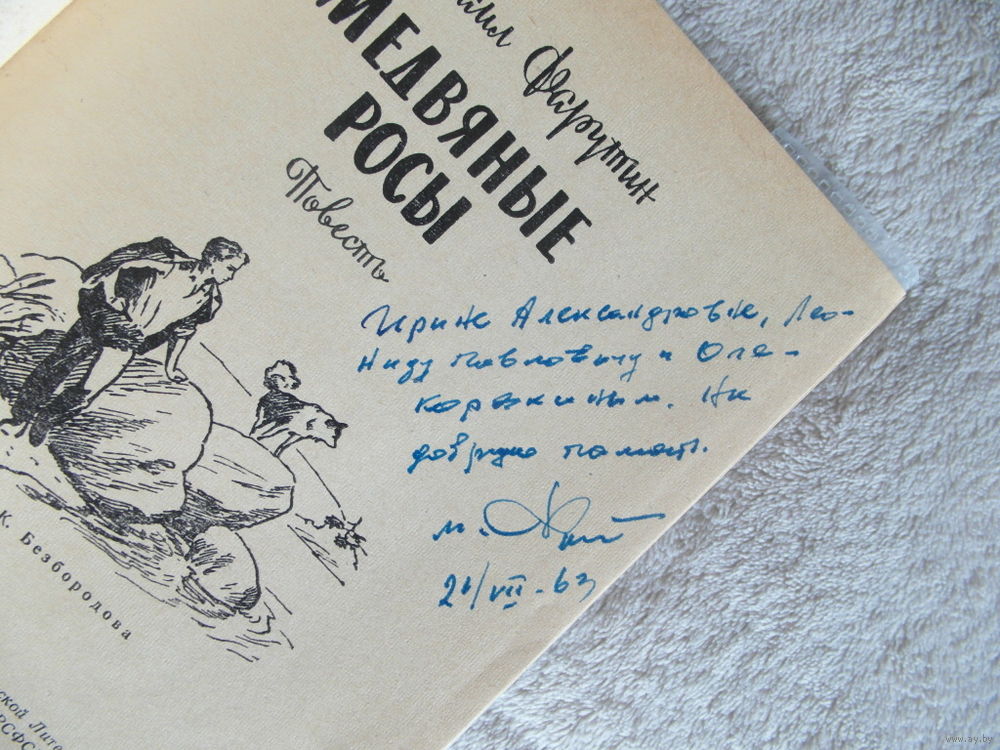 Фарутин
МЕДВЯНЫЕ
РОСЫ
Повесть
Ирине Александровне, Лео-
ниду Павловичу и Оле -
Коряжкиным. На
добрую память.
М.
21/VII-63
К. Безбородова
ской Лите
РСФС
www.ay.by